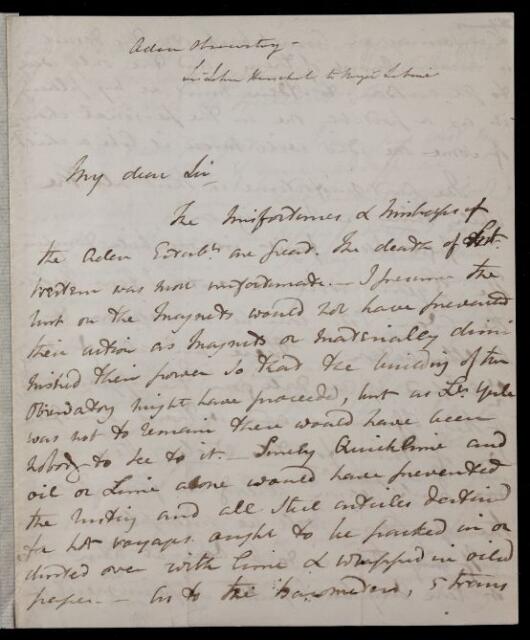 Aden Observatory -
Sir John Herschel to Major Sabine
My dear Sir
The Misfortunes & Mishaps of
the Aden Estabt. are great. The death of Lieut.
Western was most unfortunate. - I presume the
rust on the Magnets would not have prevented
their action as Magnets or materially dimi
nished their power so that the building of the
Observatory might have proceeded, but as Lt. Yule
was not to remain there would have been
nobody to see to it - Surely Quicklime and
oil or Lime alone would have prevented
the rusting and all Steel articles destined
for hot voyages ought to be packed in or
dusted over with lime & wrapped in oiled
paper. - As to the barometers, 5